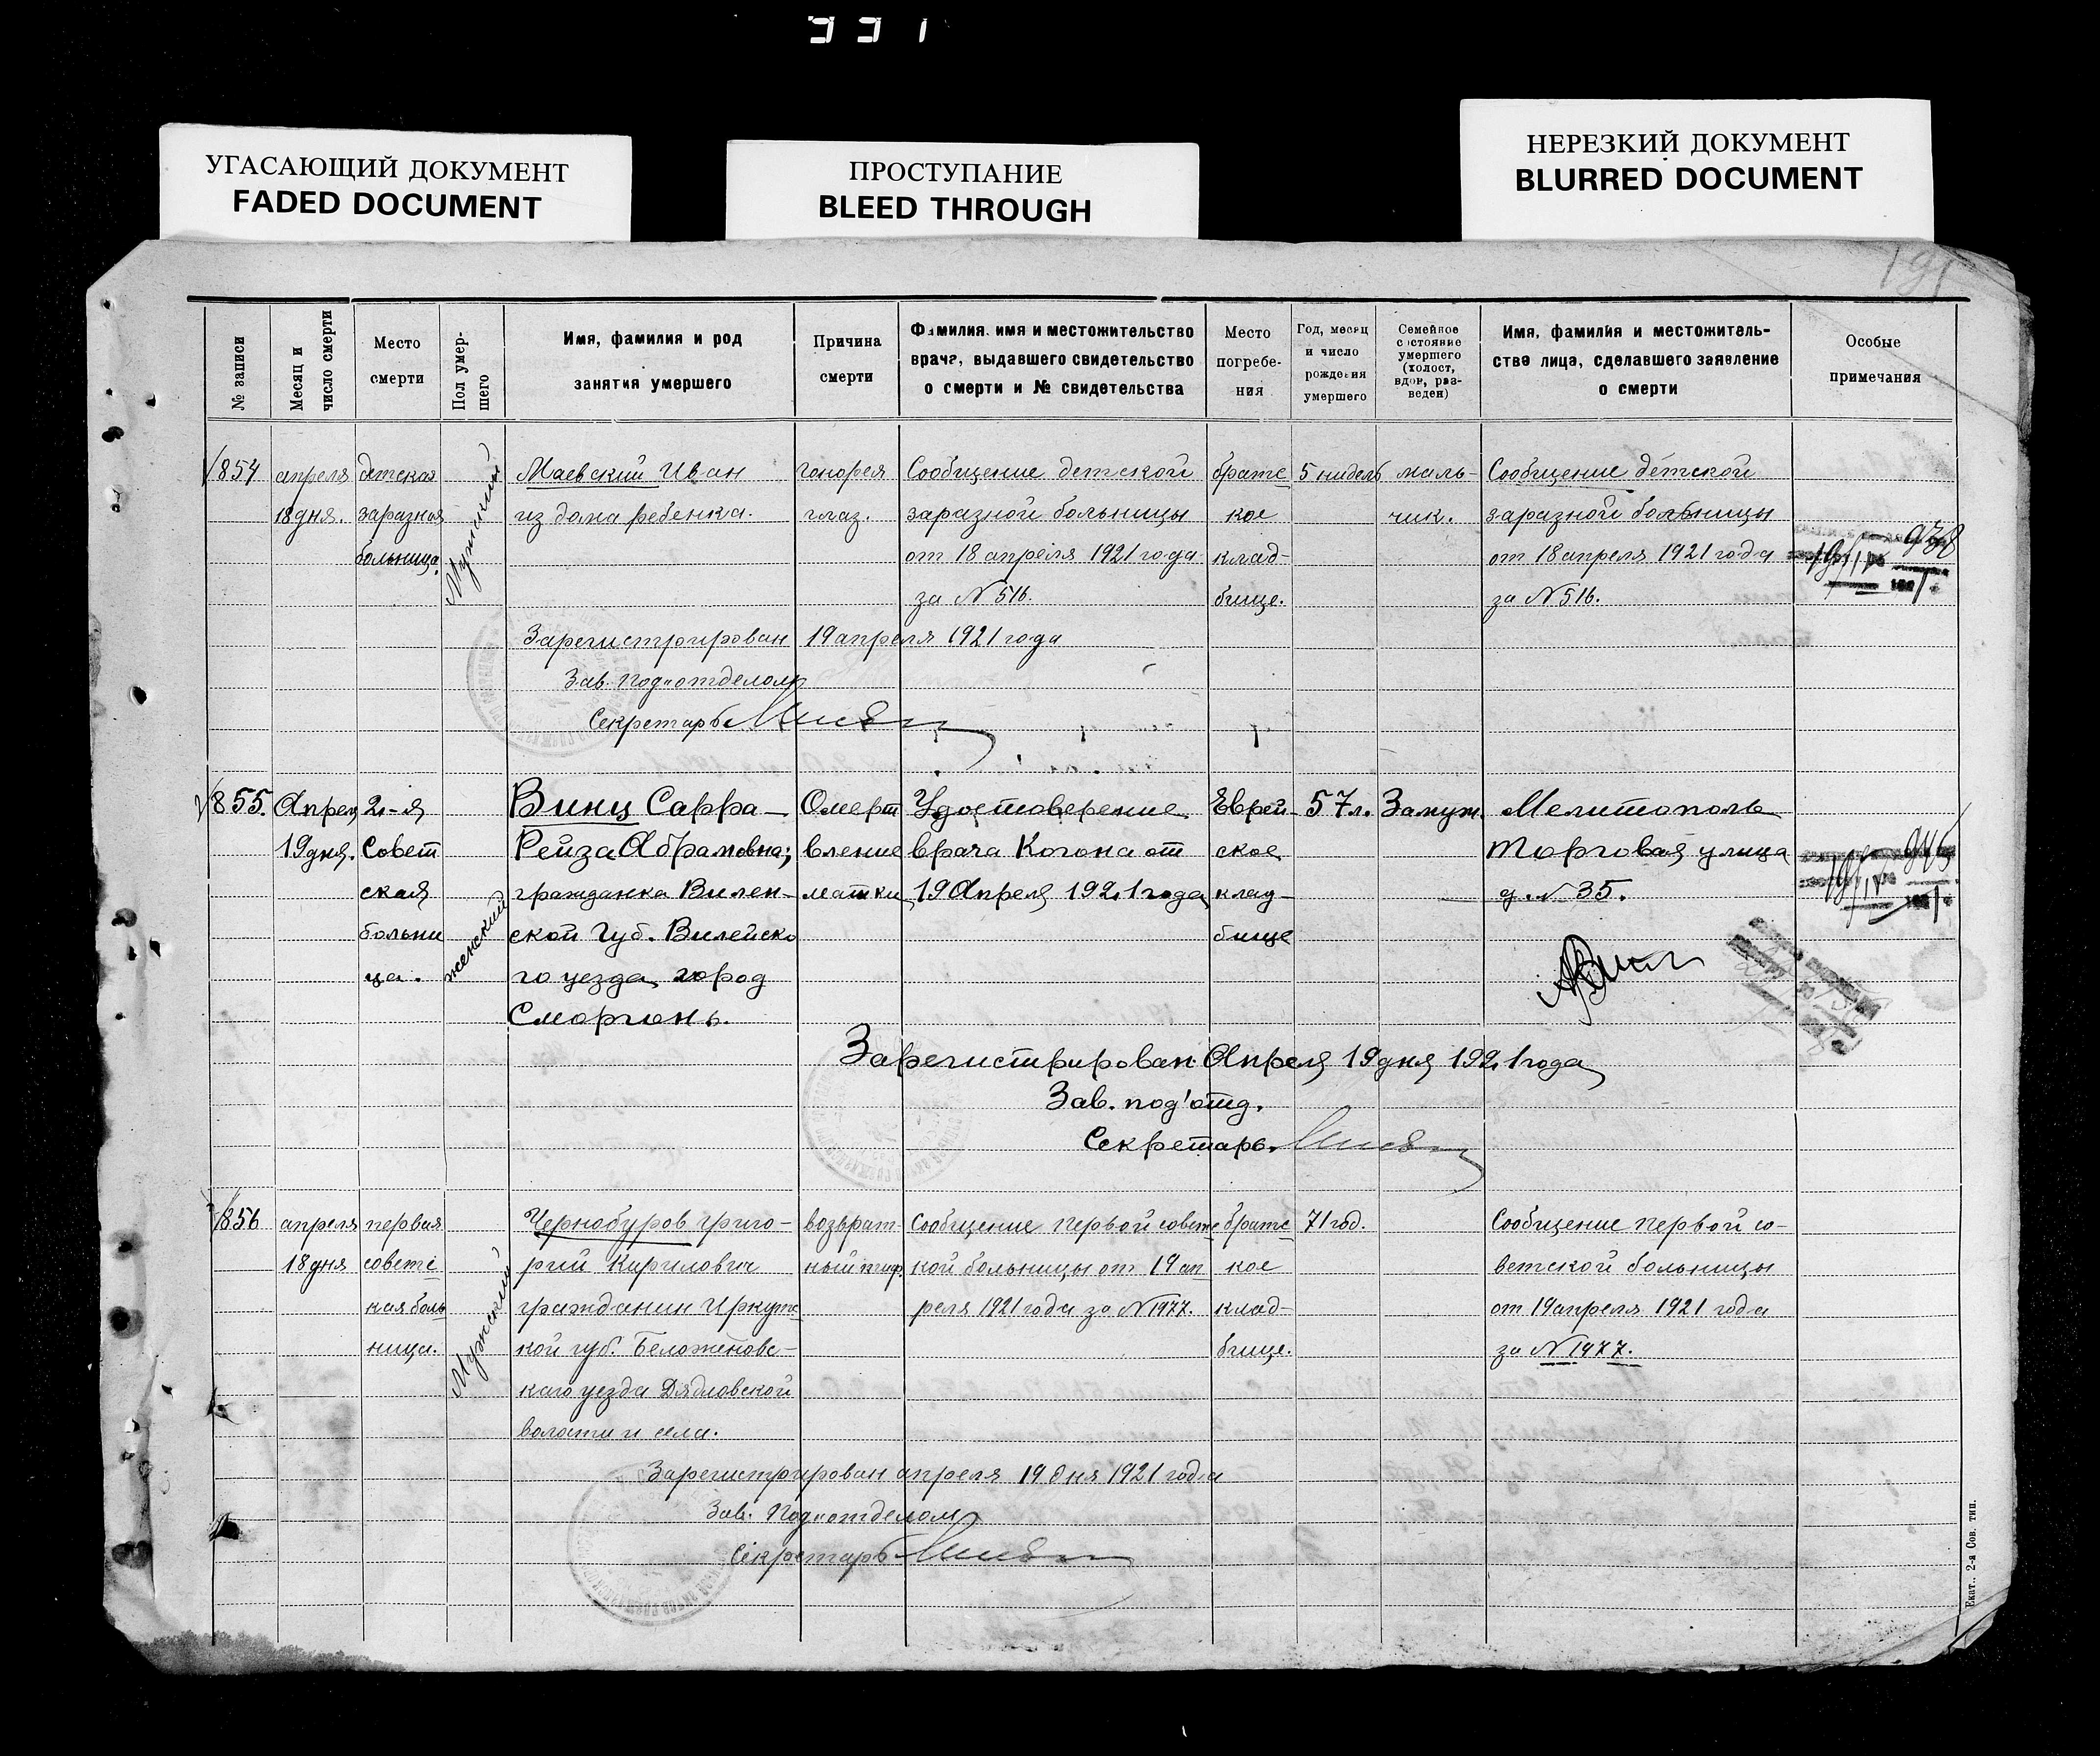 331
УГАСАЮЩИЙ ДОКУМЕНТ
FADED DOCUMENT
ПРОСТУПАНИЕ
BLEED THROUGH
НЕРЕЗКИЙ ДОКУМЕНТ
BLURRED DOCUMENT
191
№ записи
Месяц и
число смерти
Место
смерти
Пол умер-
шего
Имя, фамилия и род
занятия умершего
Причина
смерти
Фамилия, имя и местожительство
врача, выдавшего свидетельство
о смерти и № свидетельства
Место
погребе-
ния
Год, месяц
и число
рождения
умершего
Семейное
состояние
умершего
(холост,
вдов, раз-
веден)
Имя, фамилия и местожитель-
ство лица, сделавшего заявление
о смерти
Особые
примечания
854
апреля
18 дня.
детская
заразная
больница.
Мужский
Маевский Иван
из дома ребенка.
гонорея
глаз.
Сообщение детской
заразной больницы
от 18 апреля 1921 года
за N 516.
братс
кое
клад-
бище.
5 нидель
маль-
чик.
Сообщение детской
заразной больницы
от 18 апреля 1921 года
за N 516.
Зарегистрирован 19 апреля 1921 года
Зав. Подъотделом
Секретарь
855.
Апрел
19 дня.
2-я
Совет
ская
больни
ца.
женский
Винц Сарра-
Рейза Абрамовна;
гражданка Вилен-
ской Губ. Вилейско
го уезда, город
Сморгонь.
Омерт
вление
матки
Удостоверение
врача Когона от
19 Апреля 1921 года
Еврей-
ское
клад-
бище
57 л.
Замуж.
Мелитополь
Торговая улица
д. N 35.
Зарегистрирован Апреля 19 дня 1921 года
Зав. под'отд.
Секретарь
856
апреля
18 дня
первая
советс
кая боль
ница.
Мужский
Чернобуров Григо-
рий Кирилович
гражданин Иркутс
кой губ.
каго уезда Дядловской
волости и села.
возврат-
ный тиф.
Сообщение первой советс
кой больницы от 19 ап
реля 1921 года за N 1977.
братс
кое
клад-
бище.
71 год.
Сообщение первой со-
ветской больницы
от 19 апреля 1921 года
за N 1977.
Зарегистрирован апреля 19 дня 1921 года
Зав. Подъотделом
Секретарь
Екат., 2-я Сов. тип.